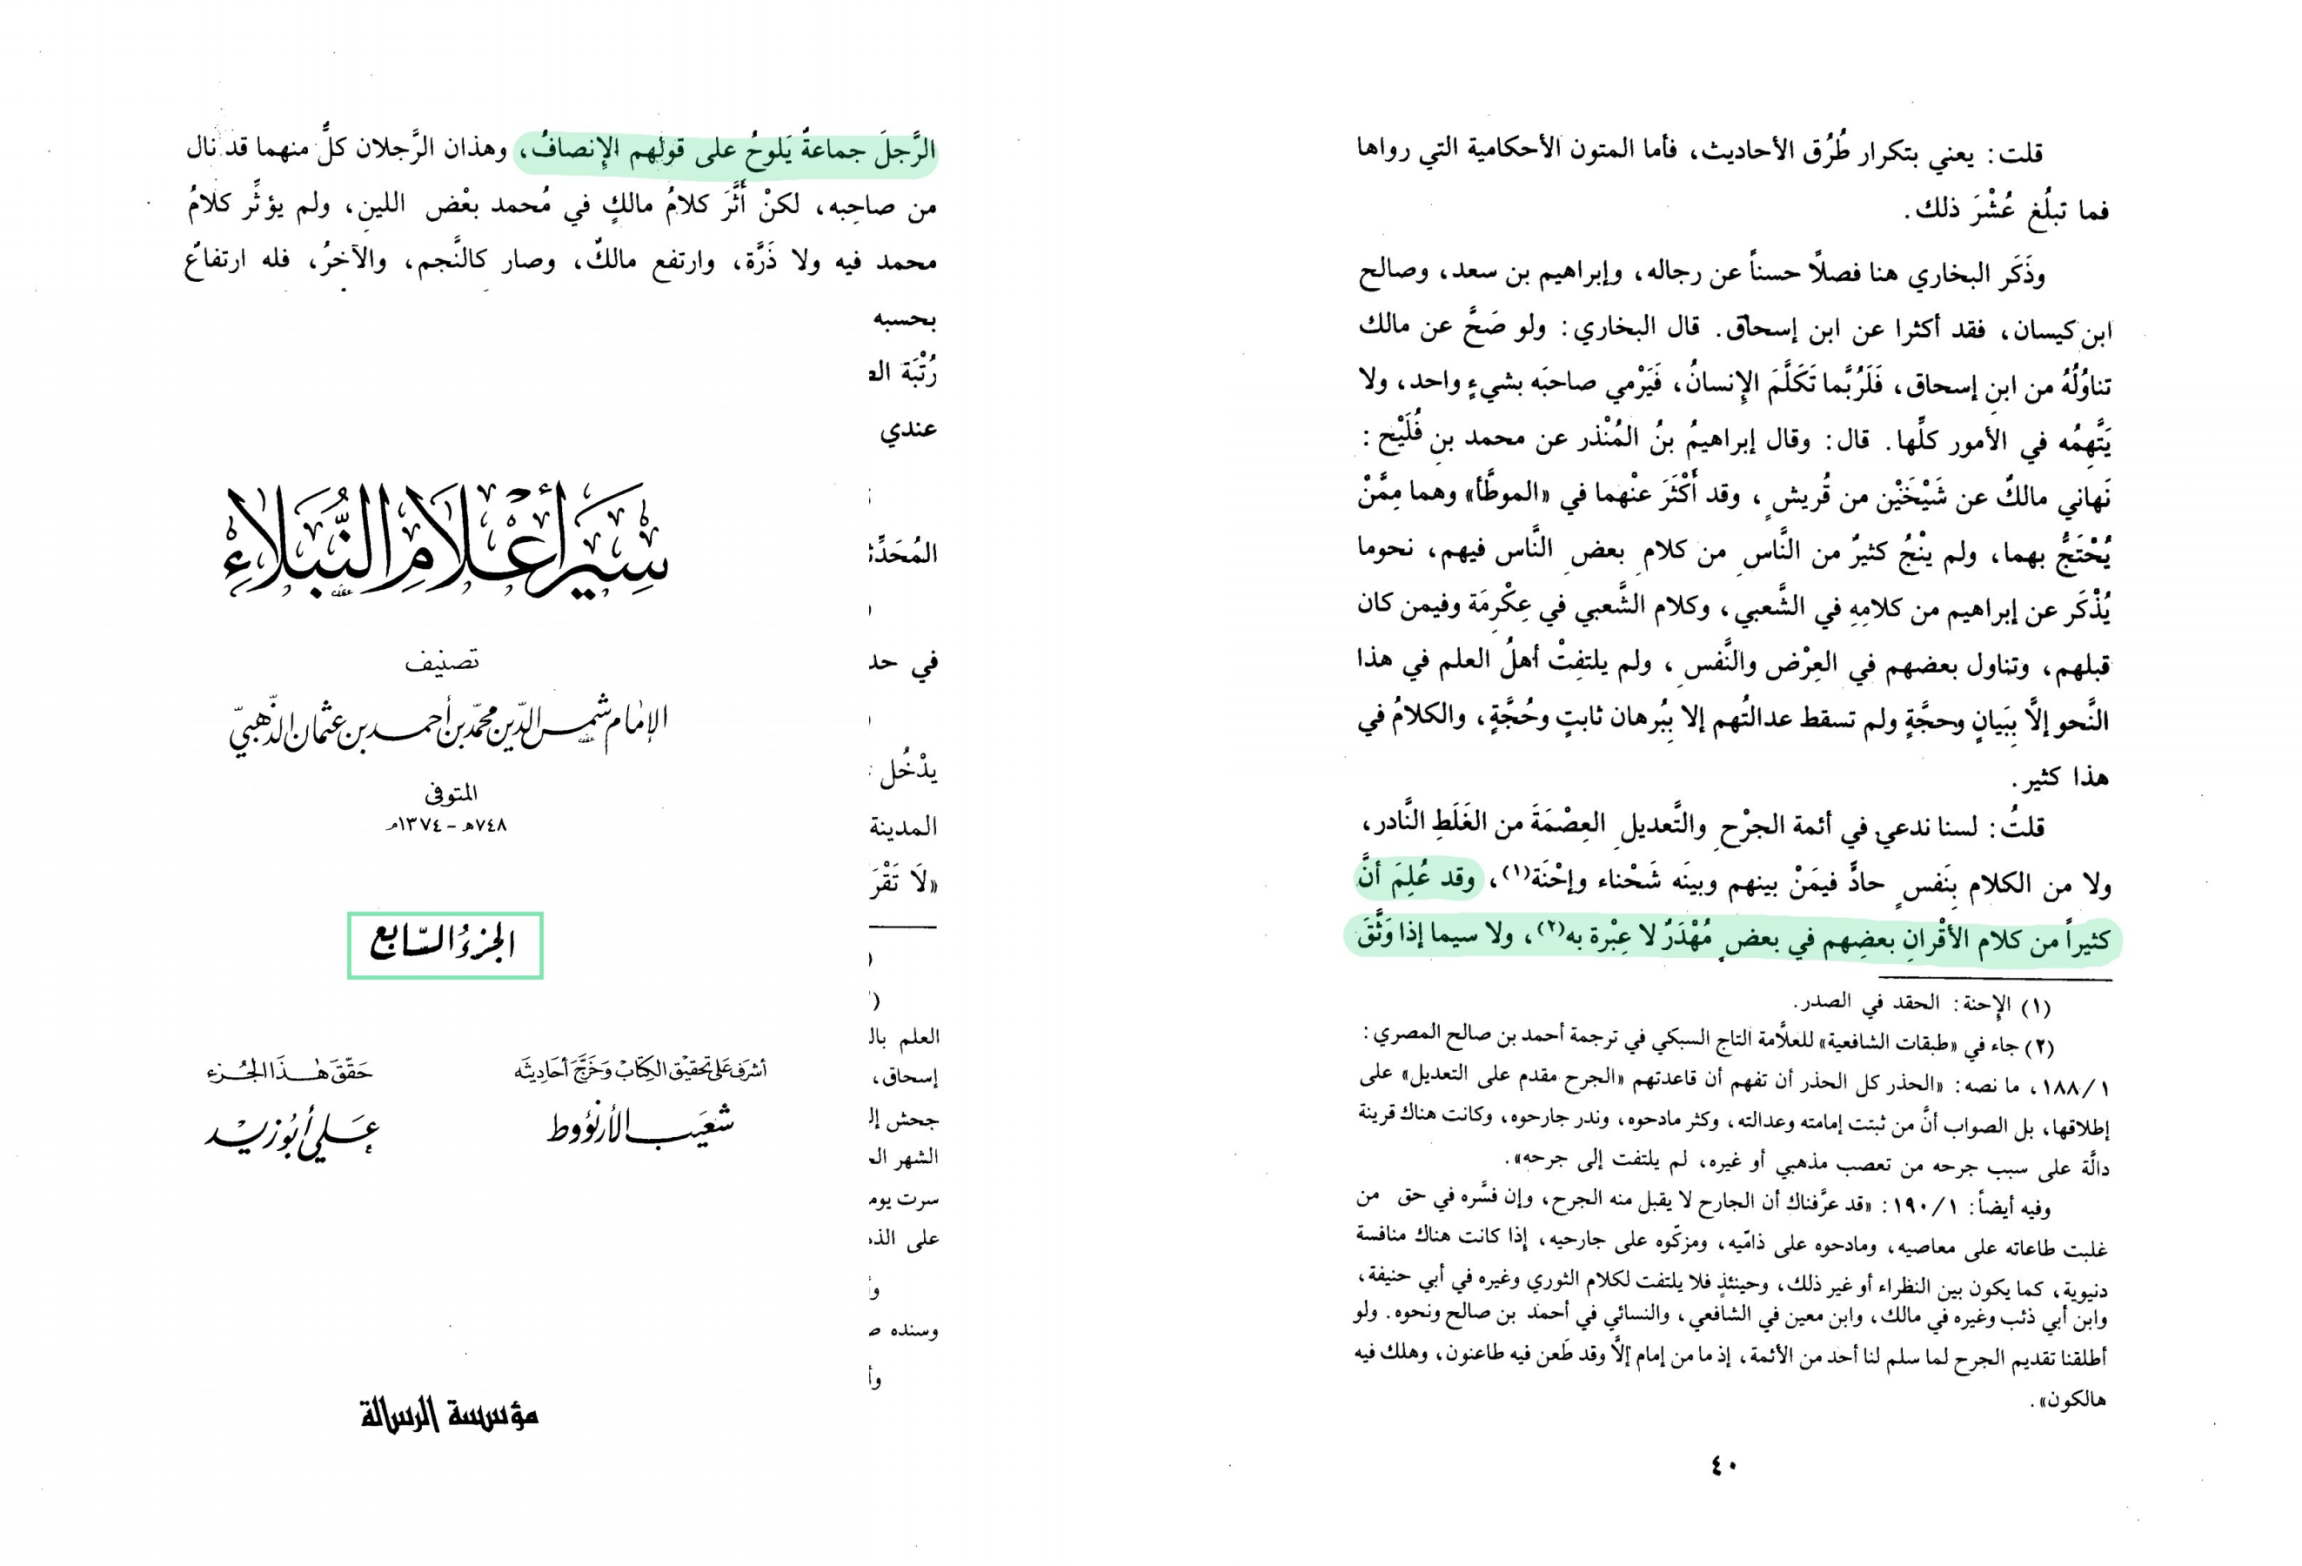 قلت: يعني بتكرار طُرُق الأحاديث، فأما المتون الأحكامية التي رواها
فما تبلُغ عُشْرَ ذلك.
وذَكَر البخاري هنا فصلًا حسناً عن رجاله، وإبراهيم بن سعد، وصالح
ابن كيسان، فقد أكثرا عن ابن إسحاق. قال البخاري: ولو صَحَّ عن مالك
تناوُلُهُ من ابنِ إسحاق، فَلَرُبَّما تَكَلَّمَ الإِنسانُ، فَيَرْمي صاحبَه بشيءٍ واحد، ولا
يَتَّهِمُه في الأمور كلِّها. قال: وقال إبراهيمُ بنُ المُنْذر عن محمد بنِ فُلَيْح:
نَهاني مالكٌ عن شَيْخَيْن من قُريشٍ، وقد أَكْثَرَ عنْهما في «الموطَّأ» وهما مِمَّنْ
يُحْتَجُّ بهما، ولم ينْجُ كثيرٌ من النَّاسِ من كلامِ بعضِ النَّاس فيهم، نحوما
يُذْكَر عن إبراهيم من كلامِهِ في الشَّعبي، وكلام الشَّعبي في عِكْرِمَة وفيمن كان
قبلهم، وتناول بعضهم في العِرْض والنَّفسِ، ولم يلتفِتْ أهلُ العلم في هذا
النَّحو إلَّا بِبَيانٍ وحجَّةٍ ولم تسقط عدالتُهم إلا بِبُرهان ثابتٍ وحُجَّةٍ، والكلامُ في
هذا كثير.
قلتُ: لسنا ندعي في أئمة الجرْحِ والتَّعديلِ العِصْمَةَ من الغَلَطِ النَّادر،
ولا من الكلام بِنَفسٍ حادٍّ فيمَنْ بينهم وبينَه شَحْناء وإحْنَة(١)، وقد عُلِمَ أنَّ
كثيراً من كلام الأقْرانِ بعضِهم في بعضٍ مُهْدَرٌ لا عِبْرة به(٢)، ولا سيما إذا وَثَّقَ
(١) الإِحنة: الحقد في الصدر.
(٢) جاء في «طبقات الشافعية» للعلَّامة التاج السبكي في ترجمة أحمد بن صالح المصري:
١/ ١٨٨، ما نصه: «الحذر كل الحذر أن تفهم أن قاعدتهم «الجرح مقدم على التعديل» على
إطلاقها، بل الصواب أنَّ من ثبتت إمامته وعدالته، وكثر مادحوه، وندر جارحوه، وكانت هناك قرينة
دالَّة على سبب جرحه من تعصب مذهبي أو غيره، لم يلتفت إلى جرحه».
وفيه أيضاً: ١/ ١٩٠: «قد عرَّفناك أن الجارح لا يقبل منه الجرح، وإن فسَّره في حق من
غلبت طاعاته على معاصيه، ومادحوه على ذامّيه، ومزكّوه على جارحيه، إذا كانت هناك منافسة
دنيوية، كما يكون بين النظراء أو غير ذلك، وحينئذٍ فلا يلتفت لكلام الثوري وغيره في أبي حنيفة،
وابن أبي ذئب وغيره في مالك، وابن معين في الشافعي، والنسائي في أحمد بن صالح ونحوه. ولو
أطلقنا تقديم الجرح لما سلم لنا أحد من الأئمة، إذ ما من إمام إلَّا وقد طَعن فيه طاعنون، وهلك فيه
هالكون».
٤٠
الرَّجلَ جماعةٌ يَلوحُ على قولهم الإِنصافُ، وهذان الرَّجلان كلٌّ منهما قد نال
من صاحِبه، لكنْ أَثَّرَ كلامُ مالكٍ في مُحمد بعْض اللينِ، ولم يؤثِّر كلامُ
محمد فيه ولا ذَرَّة، وارتفع مالكٌ، وصار كالنَّجم، والآخرُ، فله ارتفاعٌ
بحسبه
رُتْبَة
عندي
سِيَرُ أَعْلَامِ النُّبَلَاءِ
تصنيف
الإمام شمس الدّين محمّد بن أحمد بن عثمان الذّهبيّ
المتوفى
٧٤٨هـ - ١٣٧٤م
في
يدْخُل
المدينة
«لَا
الجزءُ السّابع
العلم
إسحاق،
جحش
الشهر
سرت
على
وسنده
أشرف على تحقيق الكتاب وخرّج أحاديثه
شعيب الأرنؤوط
حقّق هذا الجزء
علي أبو زيد
مؤسسة الرسالة